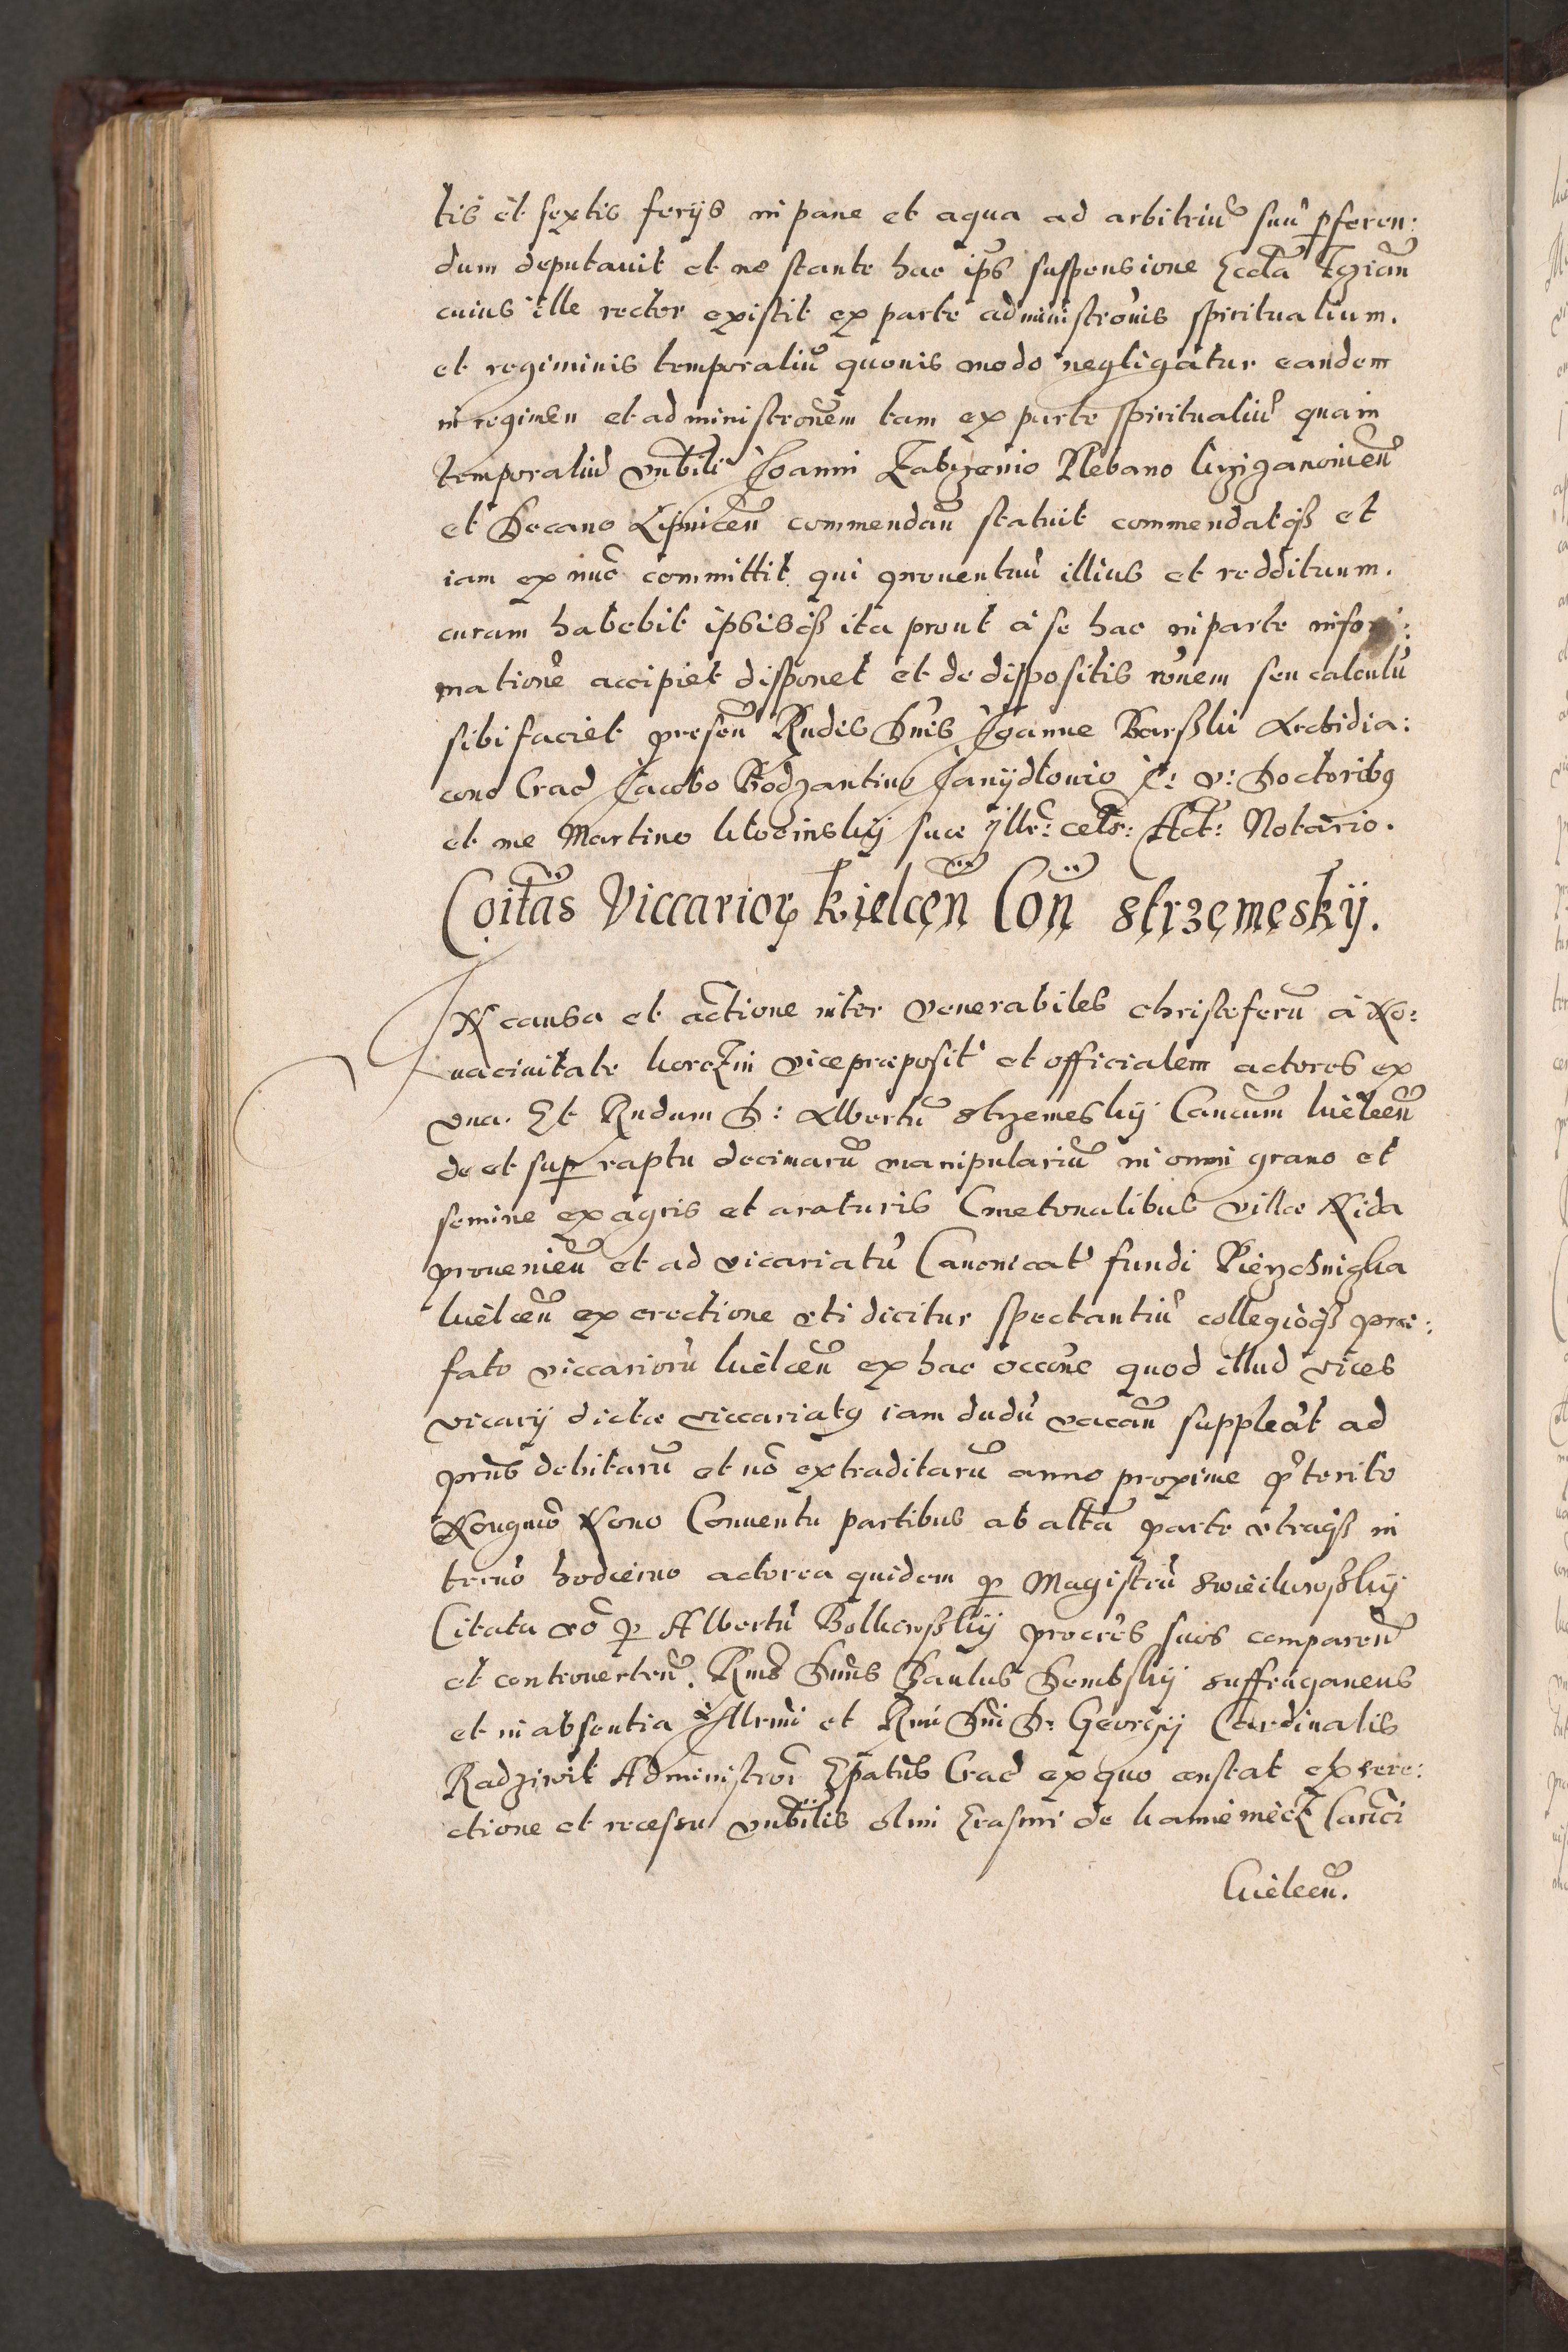 tis et sextis ferijs in pane et aqua ad arbitriū suū ꝑferen:
dum deputauit et ne stante hac ips̄ suspensione Eccl̄a
cuius ille rector existit ex parte administrōnis spiritualium.
et regiminis temporaliū quouis modo negligatur eandem
in regimen et administrōnem tam ex parte spiritualiū quam
temporaliū vn̄bili Joanni Zabrzenio Plebano
et Decano Lipnicēn commendān statuit commendatq̃ et
iam ex nūc committit qui prouentuū illius et redditunm.
curam habebit ipsisq̃ ita prout à se hac in parte infor:
mationē accipiet disponet et de dispositis rōnem seu calculū
sibi faciet presēn Rndis Dnīs Joanne Barski Archidia:
cono Crac̄ Jacobo Rodzantino Janijdlouio J: V: Doctoribꝰ
et me Martino kłoćinskij suæ Jllr̄: cels: Act: Notario.
Coit̄as Viccarioꝝ kielcēn Con̄ strzemeskij.
IN causa et actione inter venerabiles christoferū à No:
uaciuitate koreżin vicepræposit̄ et officialem actores ex
vna. Et Rndum D: Albertū strzemeskij Cancūm kielcēn
de et suꝑ raptu decimarū manipulariū in omni grano et
semine ex agris et araturis Cmetonalibus villæ Nida
prouenien̄ et ad vicariatū Canonicat̄ fundi Pierzchniczka
kielcēn ex erectione vti dicitur spectantiū collegioq̃ præ:
fato viccariorū kielcēn ex hac occōne quod illud vices
vicarij dictæ viccariatꝰ iam dudū vacān suppleāt ad
prn̄s debitarū et nō extraditarū anno proxime p̄terito
Nongmō Nono Conuentu partibus ab altā parte vtraq̃ in
termō hodierno actorea quidem ꝑ Magistrū swiecikowskij
Citata vō ꝑ Albertū Bolkowskij procrēs suos comparēn
et controuertēn. Rmūs Dnūs Paulus Dembskij suffraganeus
et in absentia Jllrmī et Rmī Dnī D: Georgij Cardinalis
Radziwił Administrōi Epatūs Crac̄ ex quo constat ex ere:
ctione et recessu vn̄bilis olim Erasmi de kamiemecz Canc̄i
kielcēn.